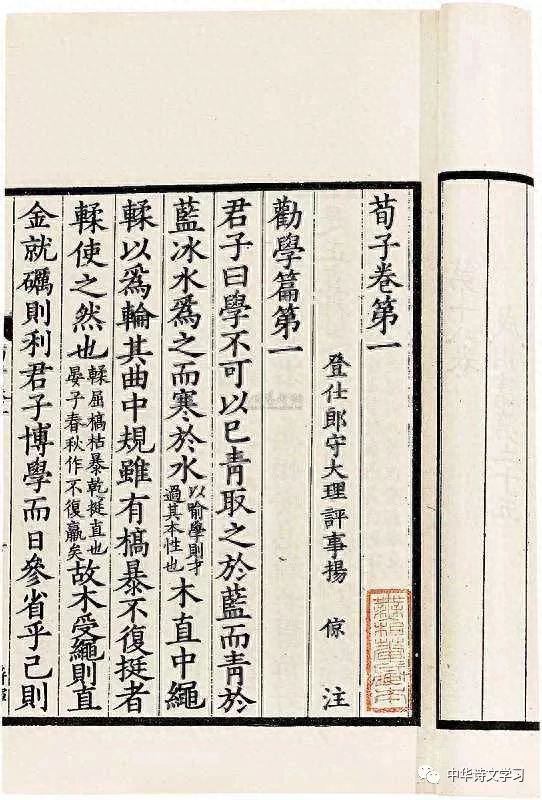 荀子卷第一
登仕郎守大理評事揚 倞 注
勸學篇第一
君子曰學不可以已青取之於藍而青於
藍冰水爲之而寒於水以喻學則才過其本性也木直中繩
輮以爲輪其曲中規雖有槁暴不復挺者
輮使之然也輮屈槁枯暴乾挺直也晏子春秋作不復贏矣故木受繩則直
金就礪則利君子博學而日參省乎己則
中华诗文学习